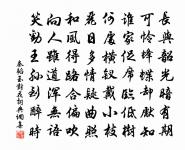 長與韶光暗有期
可憐蜂蝶卻先知
誰家促席臨低樹
何處橫釵戴小枝
麗日多情疑曲照
和風得路合偏吹
向人雖道渾無語
笑勸王孫到醉時
秦韜玉對花